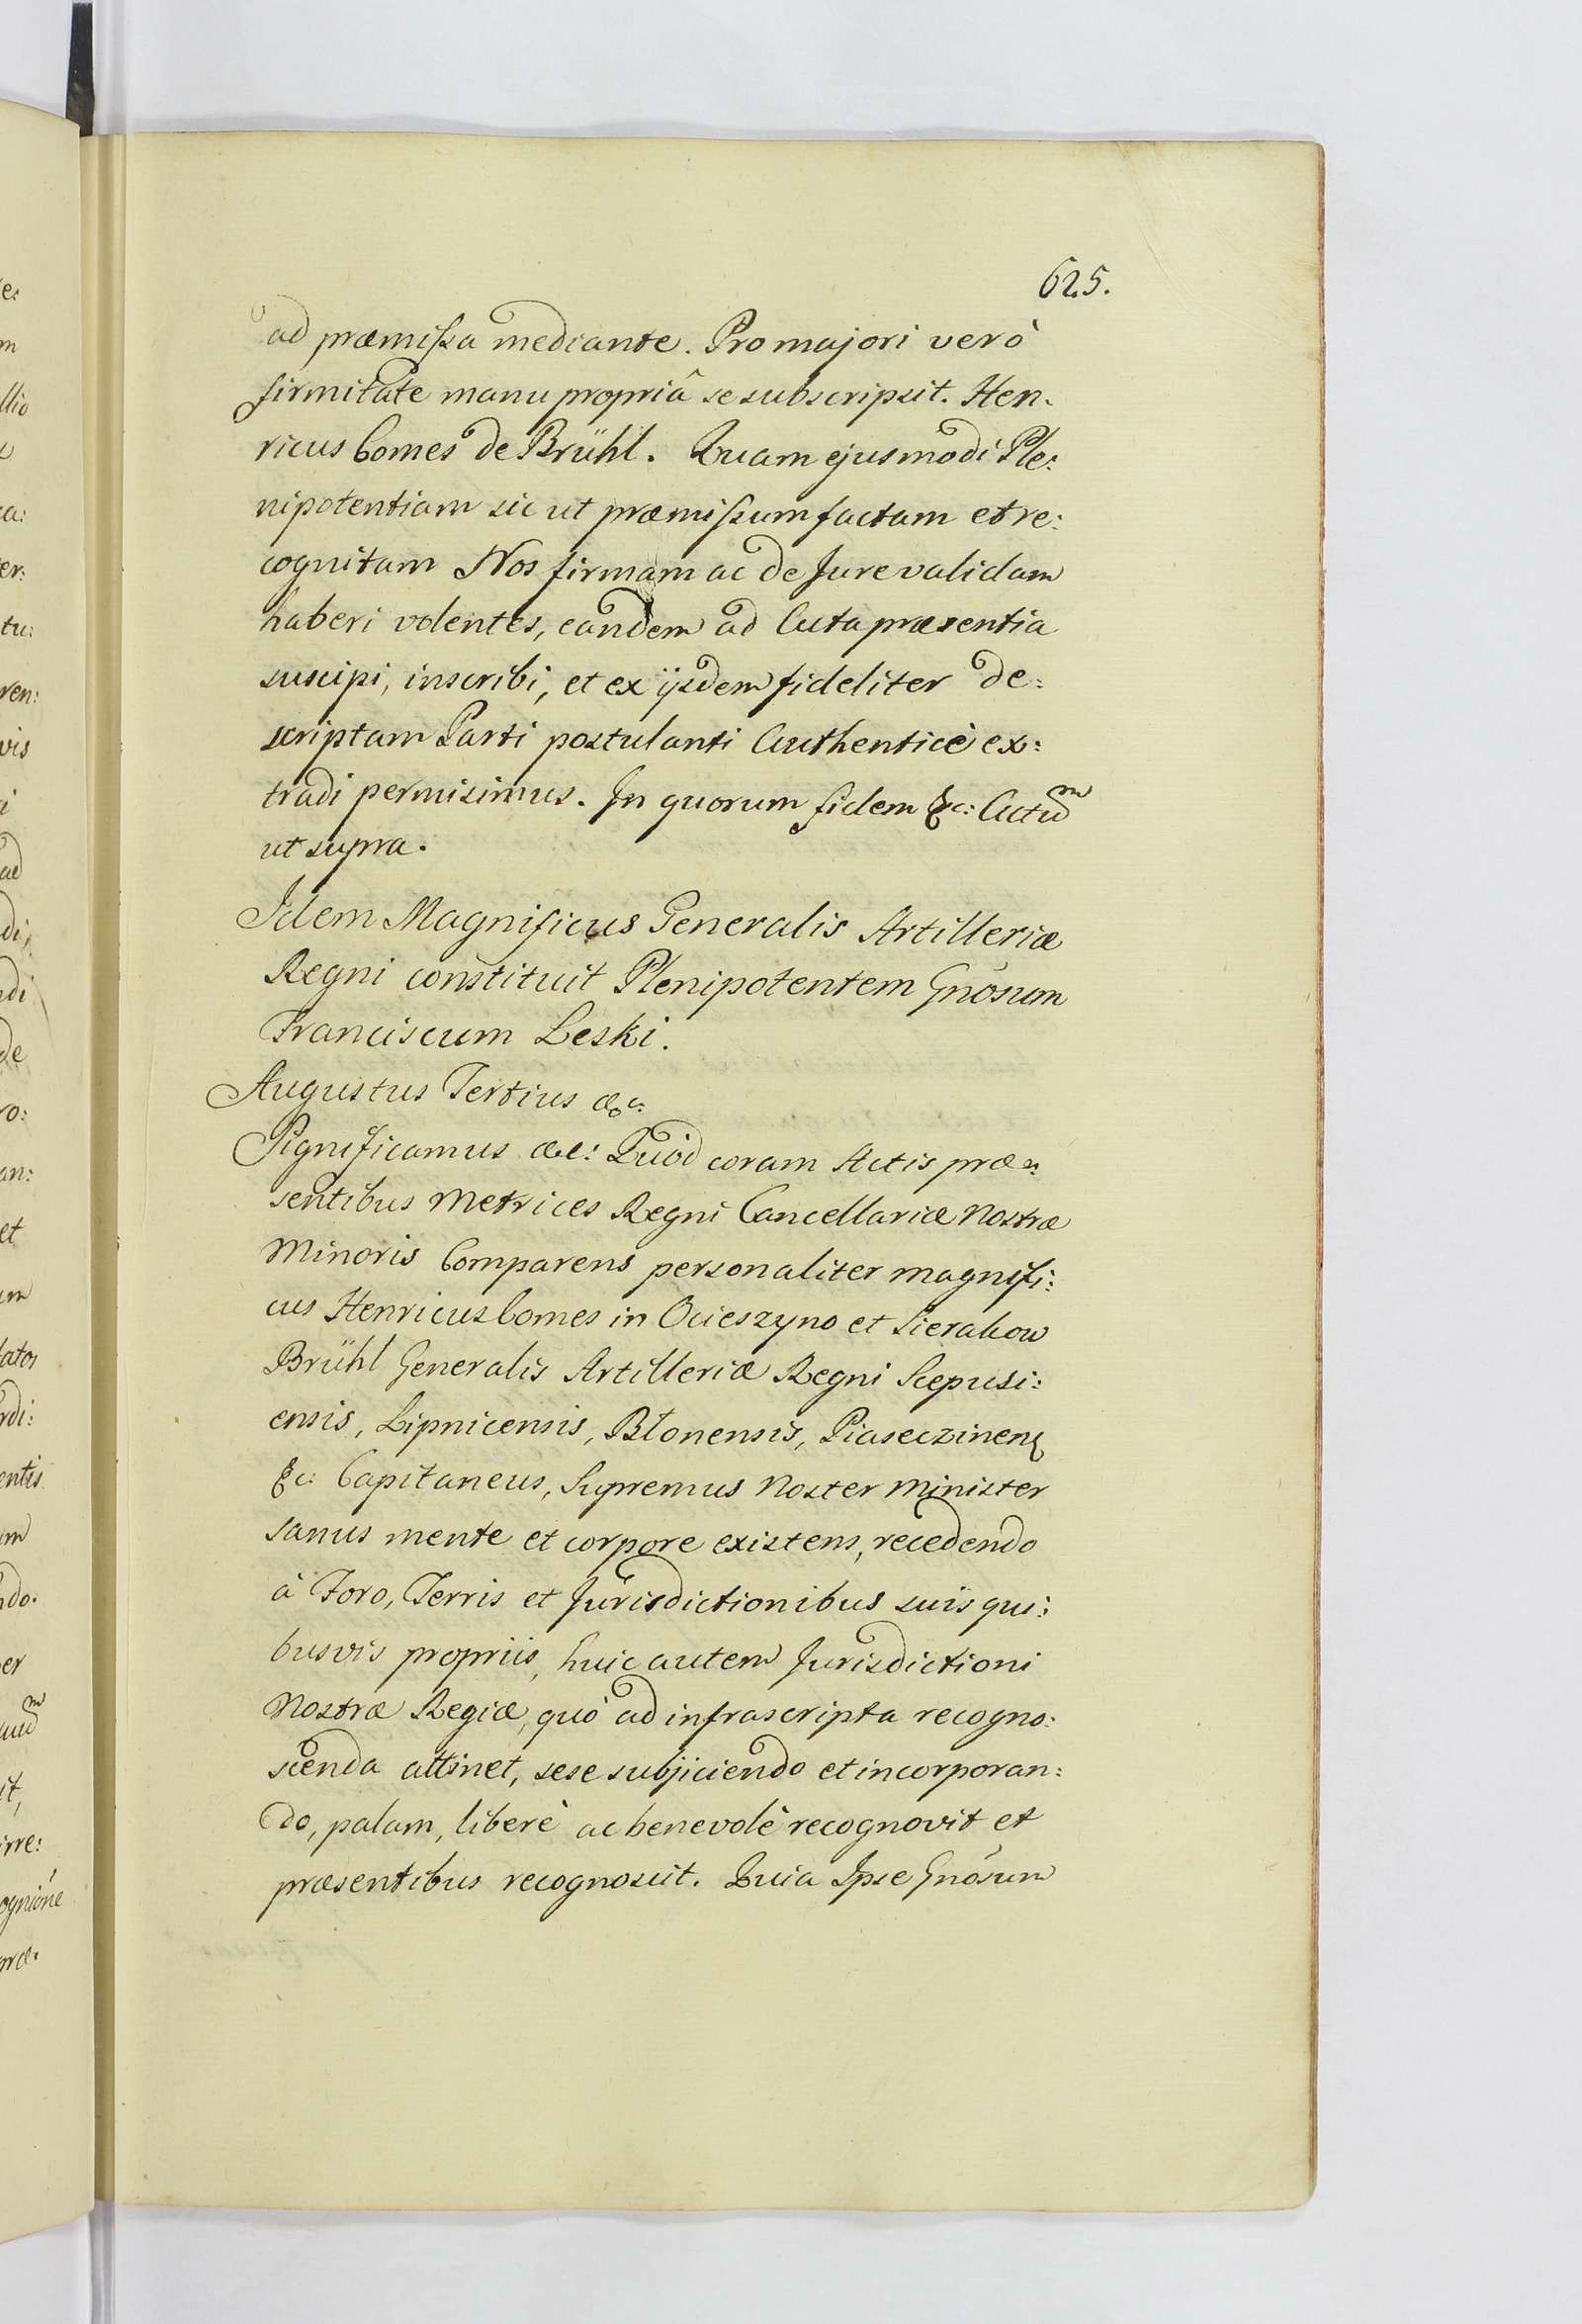 625.
ad præmissa mediante. Pro majori verò
firmitate manu propriâ se subscripsit. Hen:
ricus Comes de Brühl. Quam ejusmodi Ple:
nipotentiam sic ut præmissum factam et re:
cognitam Nos firmam ac de Jure validam
haberi volentes, eandem ad Acta præsentia
suscipi, inscribi, et ex ijsdem fideliter de:
scriptam Parti postulanti Authenticè ex:
tradi permisimus. In quorum fidem &c: Actum
ut supra.
Idem Magnificus Generalis Artilleriæ
Regni constituit Plenipotentem Gnosum
Franciscum Leski.
Augustus Tertius &c:
Significamus &c: Quòd coram Actis præ:
sentibus Metrices Regni Cancellariæ Nostræ
Minoris Comparens personaliter Magnifi:
cus Henricus Comes in Ocieszyno et Sierakow
Brühl Generalis Artilleriæ Regni Scepusi:
ensis, Lipnicensis, Błonensis, Piaseczinen
&c: Capitaneus, Supremus Noster Minister
sanus mente et corpore existens, recedendo
à Foro, Terris et Jurisdictionibus suis qui:
busvis propriis, huic autem Jurisdictioni
Nostræ Regiæ, quò ad infrascripta recogno:
scenda attinet, sese subjiciendo et incorporan:
do, palam, liberè ac benevolè recognovit et
præsentibus recognoscit. Quia Ipse Gnosum